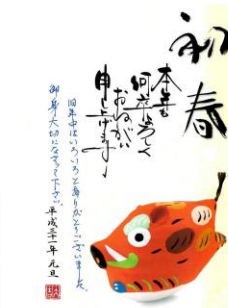 初春
本年も
何卒よろしく
おねがい
申し上げます
旧年中はいろいろとありがとうございました
御身大切になさって下さい
平成三十一年 元旦